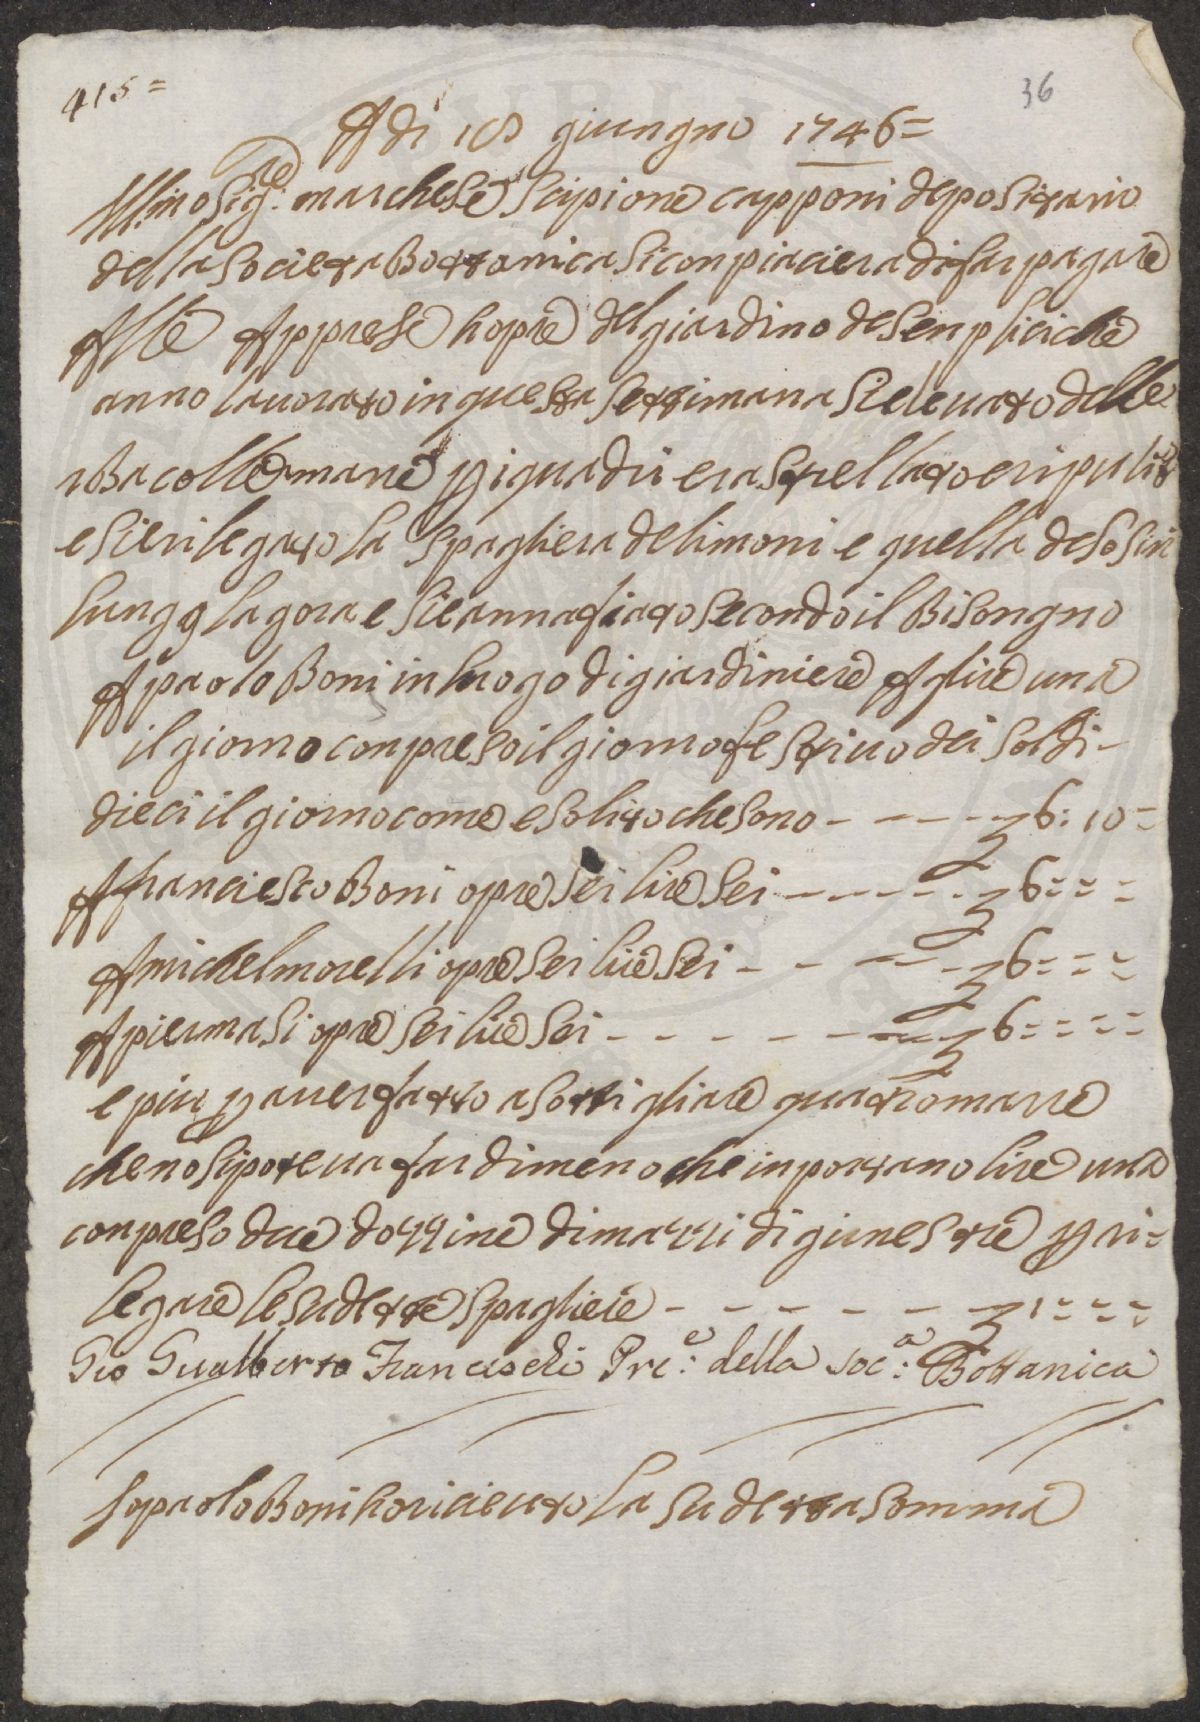 415=
36
A di 18 giungno 1746=
Ill:mo Sig:re marchese Scipione capponi depositario
della Societta Bottanica Si conpiaciera di far pagare
Alle Apprese hopre del giardino de Senplici che
anno lavorato in questa Settimana Si e levato delle
rba colle mane p i quadri e rastrellato e ripulito
e Si e rilegato la Spagliera de limoni e quella de
lungo la gora e Si e annafiato Secondo il Bisongno
A paolo Boni in luogo di giardiniere A lire una
il giorno conpreso il giorno festivo dei Soldi-
dieci il giorno come e solito che sono - - - - 6: 10=
A franciesco Boni opre Sei lire Sei - - - - - 6= = =
A michel morelli opre Sei lire Sei - - - - - 6= = =
A pier masi opre Sei lire Sei - - - - - - 6= = = =
e piu p aver fatto asottigliare quatro marre
che no Si poteva far di meno che inportano lire una
conpreso due dozzine di mazzi di ginestre p ri=
legare le sudette Spagliere - - - - - - 1= = =
Gio Gualberto Franceschi Pre: della Soc:a Bottanica
Io paolo Boni ho riceuto la Sudetta Somma